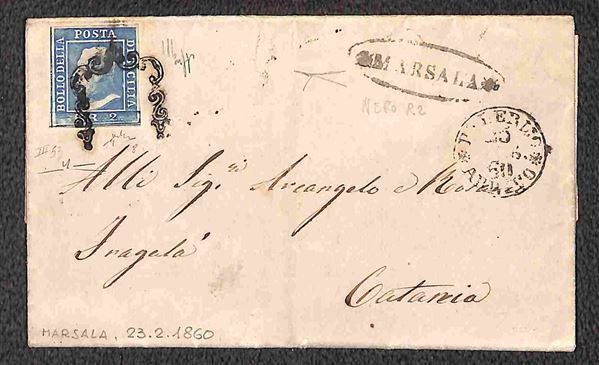 POSTA
BOLLO DELLA
DI SICILIA
2
MARSALA
NERO R2
PALERMO
ARRIVO
Alli Sig.ri Arcangelo e
Fragalà
Catania
MARSALA. 23.2.1860